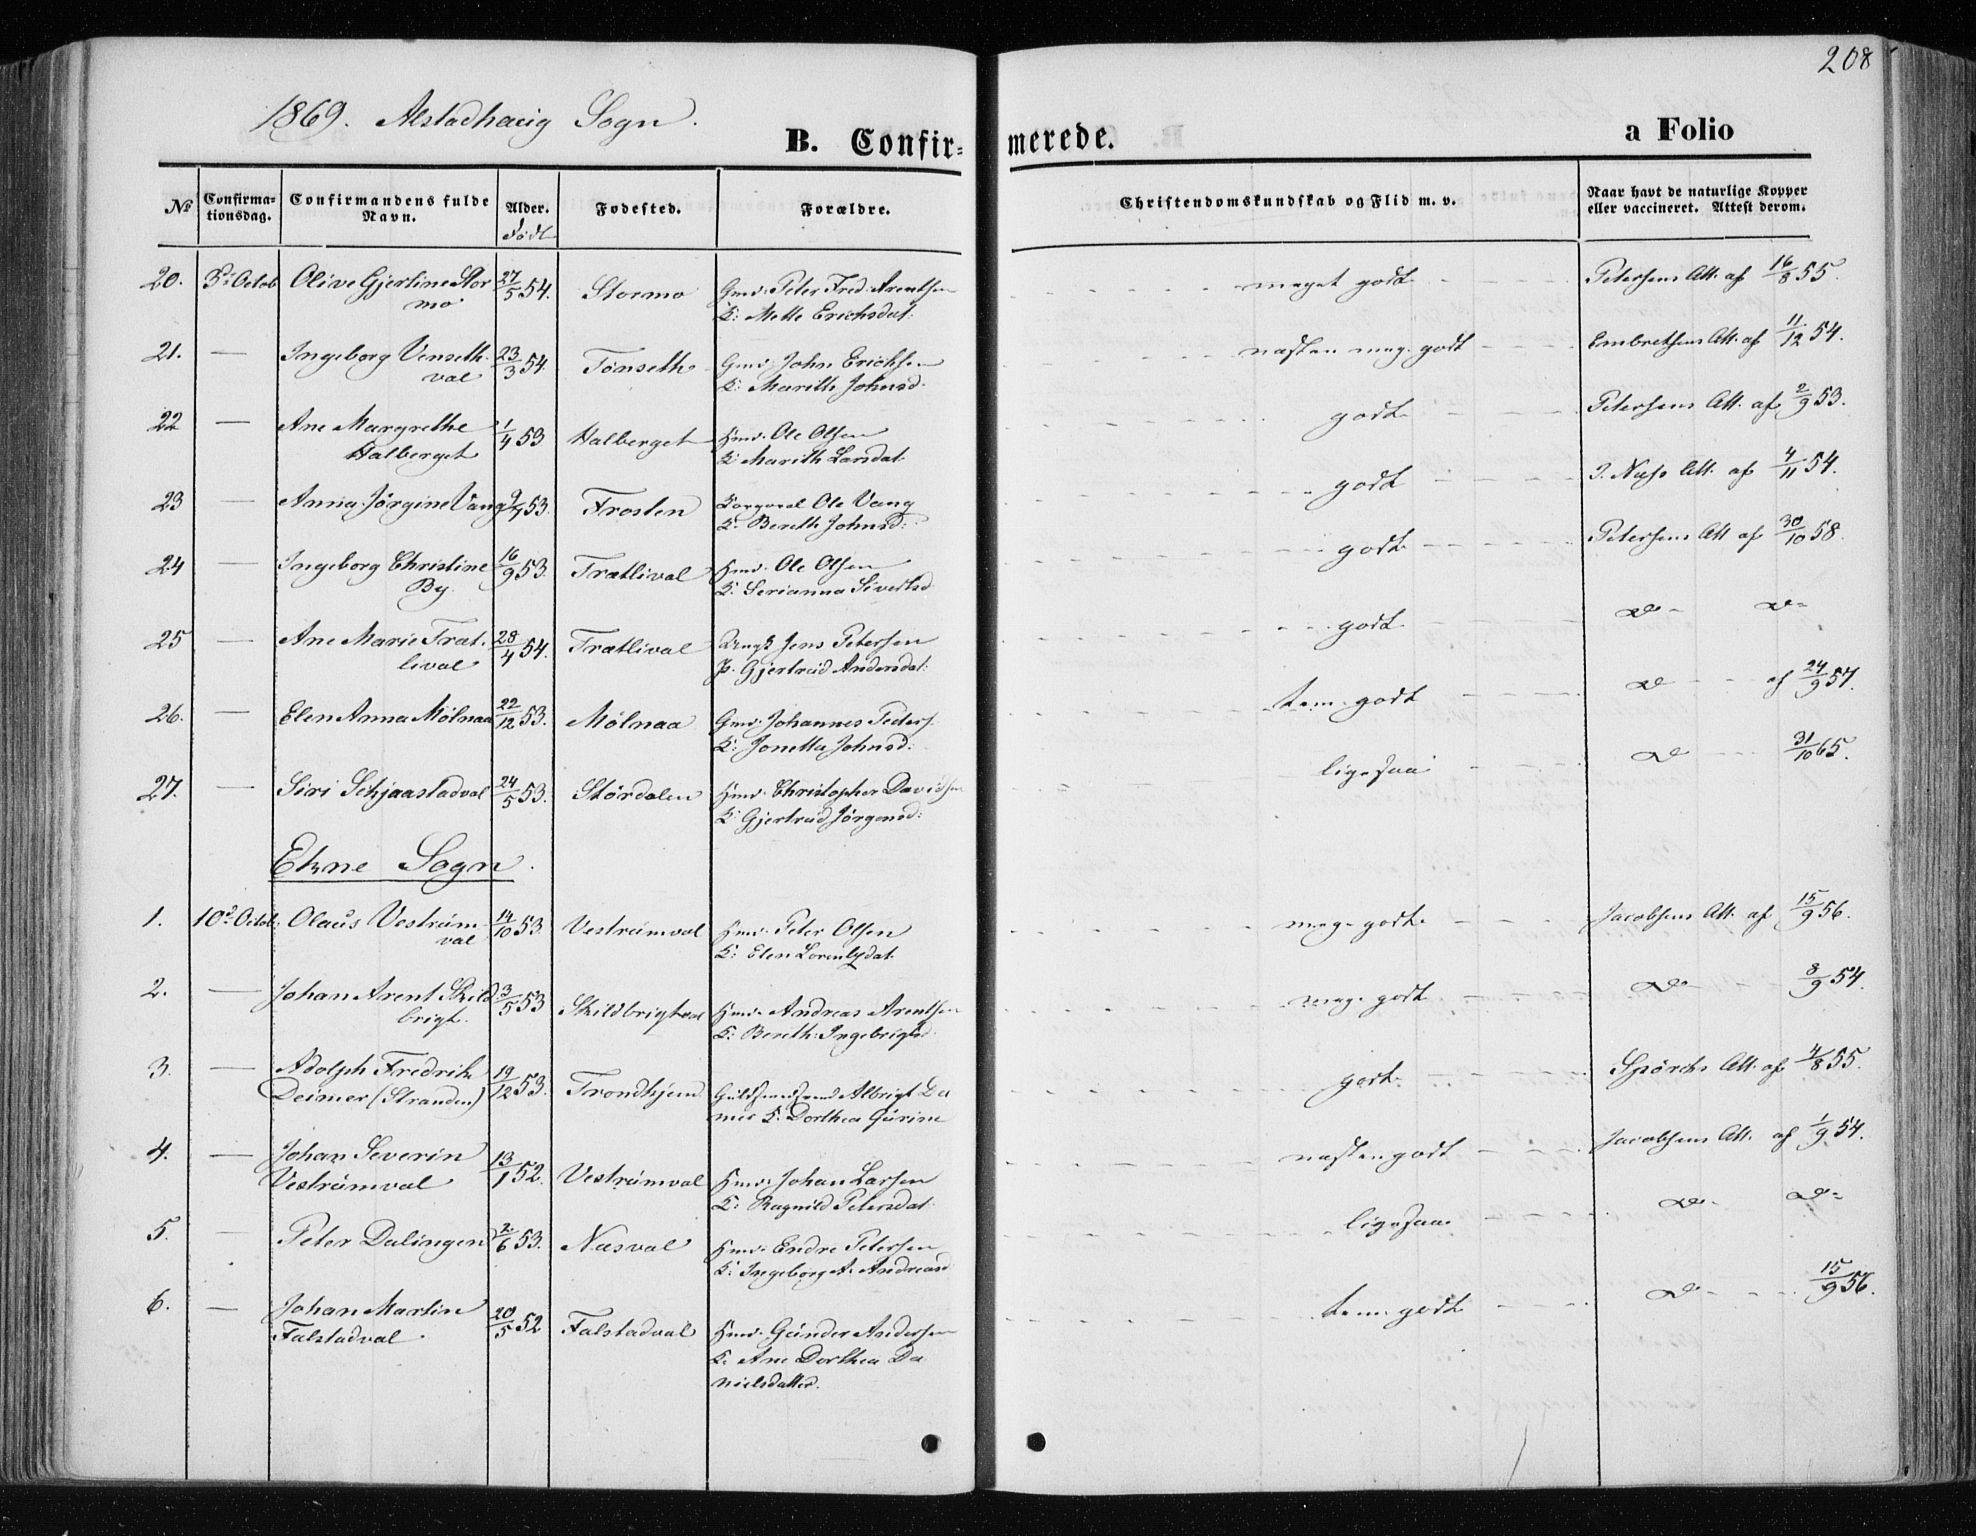 208
1869. Alstadhaug Sogn.
B. Confirmerede.
a Folio
№ Confirmationsdag. Confirmandens fulde Navn. Alder. Født Fødested. Forældre. Christendomskundskab og Flid m. v. Naar havt de naturlige Kopper eller vaccineret. Attest derom.
20. 3d Octob Olive Gjertine Stormo 27/5 54. Stormo Gmd: Peter Fred: Arentsen K: Mette Erichsdat: meget godt Petersens Att. af 16/8 55.
21. — Ingeborg Venseth val 23/3 54. Tønseth Gmd: John Erichsen K: Marith Johnsd. næsten meg. godt Embretsens Att. af 11/12 54.
22 — Ane Margrethe Halberget 1/4 53 Halberget Hmd. Ole Olsen K: Marith Larsdat: godt Petersens Att. af 2/9 53.
23 — Anna Jørgine Vang 9/7 53. Frosten Ole Vang K: Bereth Johnsd: godt J. Næss Att. af 4/11 54.
24 — Ingeborg Christine By 16/9 53. Frætlival Hmd. Ole Olsen K: Serianna Sivertsd. godt Petersens Att af 30/10 58.
25 — Ane Marie Frætlival 28/4 54. Frætlival Ungk Jens Petersen P. Gjertrud Andersdat: godt Do Do
26. — Elen Anna Mølnaa 22/12 53. Mølnaa Gmd: Johannes Peders. K: Jonetta Johnsd: tem. godt Do af 24/9 57.
27. — Siri Schjaastadval 24/5 53. Størdalen Hmd. Christopher Davidsen K: Gjertrud Jørgensd: ligesaa Do 31/10 65.
Ekne Sogn.
1. 10d Octob: Olaus Vestrumval 14/10 53. Vestrumval Hmd: Peter Olsen K: Elen Lorentzdat. meg. godt Jacobsens Att. af 15/9 56.
2. — Johan Arent Skildbrigt. 3/5 53 Skildbrigtval Hmd. Andreas Arentsen K: Bereth Ingebrigtsd. meg. godt Do 8/9 54.
3. — Adolph Fredrik Deimer (Stranden) 19/12 53. Trondhjem Guldsmedsvend Albrigt Deimer K. Dorthea Gurine godt Spörcks Att. af 4/8 55.
4. — Johan Severin Vestrumval 13/1 52. Vestrumval Hmd: Johan Larsen K: Ragnild Petersdat. næsten godt Jacobsens Att. af 1/9 54.
5. — Peter Dalingen 2/6 53. Næsval Hmd: Endre Petersen K: Ingeborg A. Andreasd ligesaa Do Do
6. — Johan Martin Falstadval 20/5 52 Falstadval Hmd. Gunder Andersen K. Ane Dorthea Danielsdatter. tem. godt Do 15/9 56.